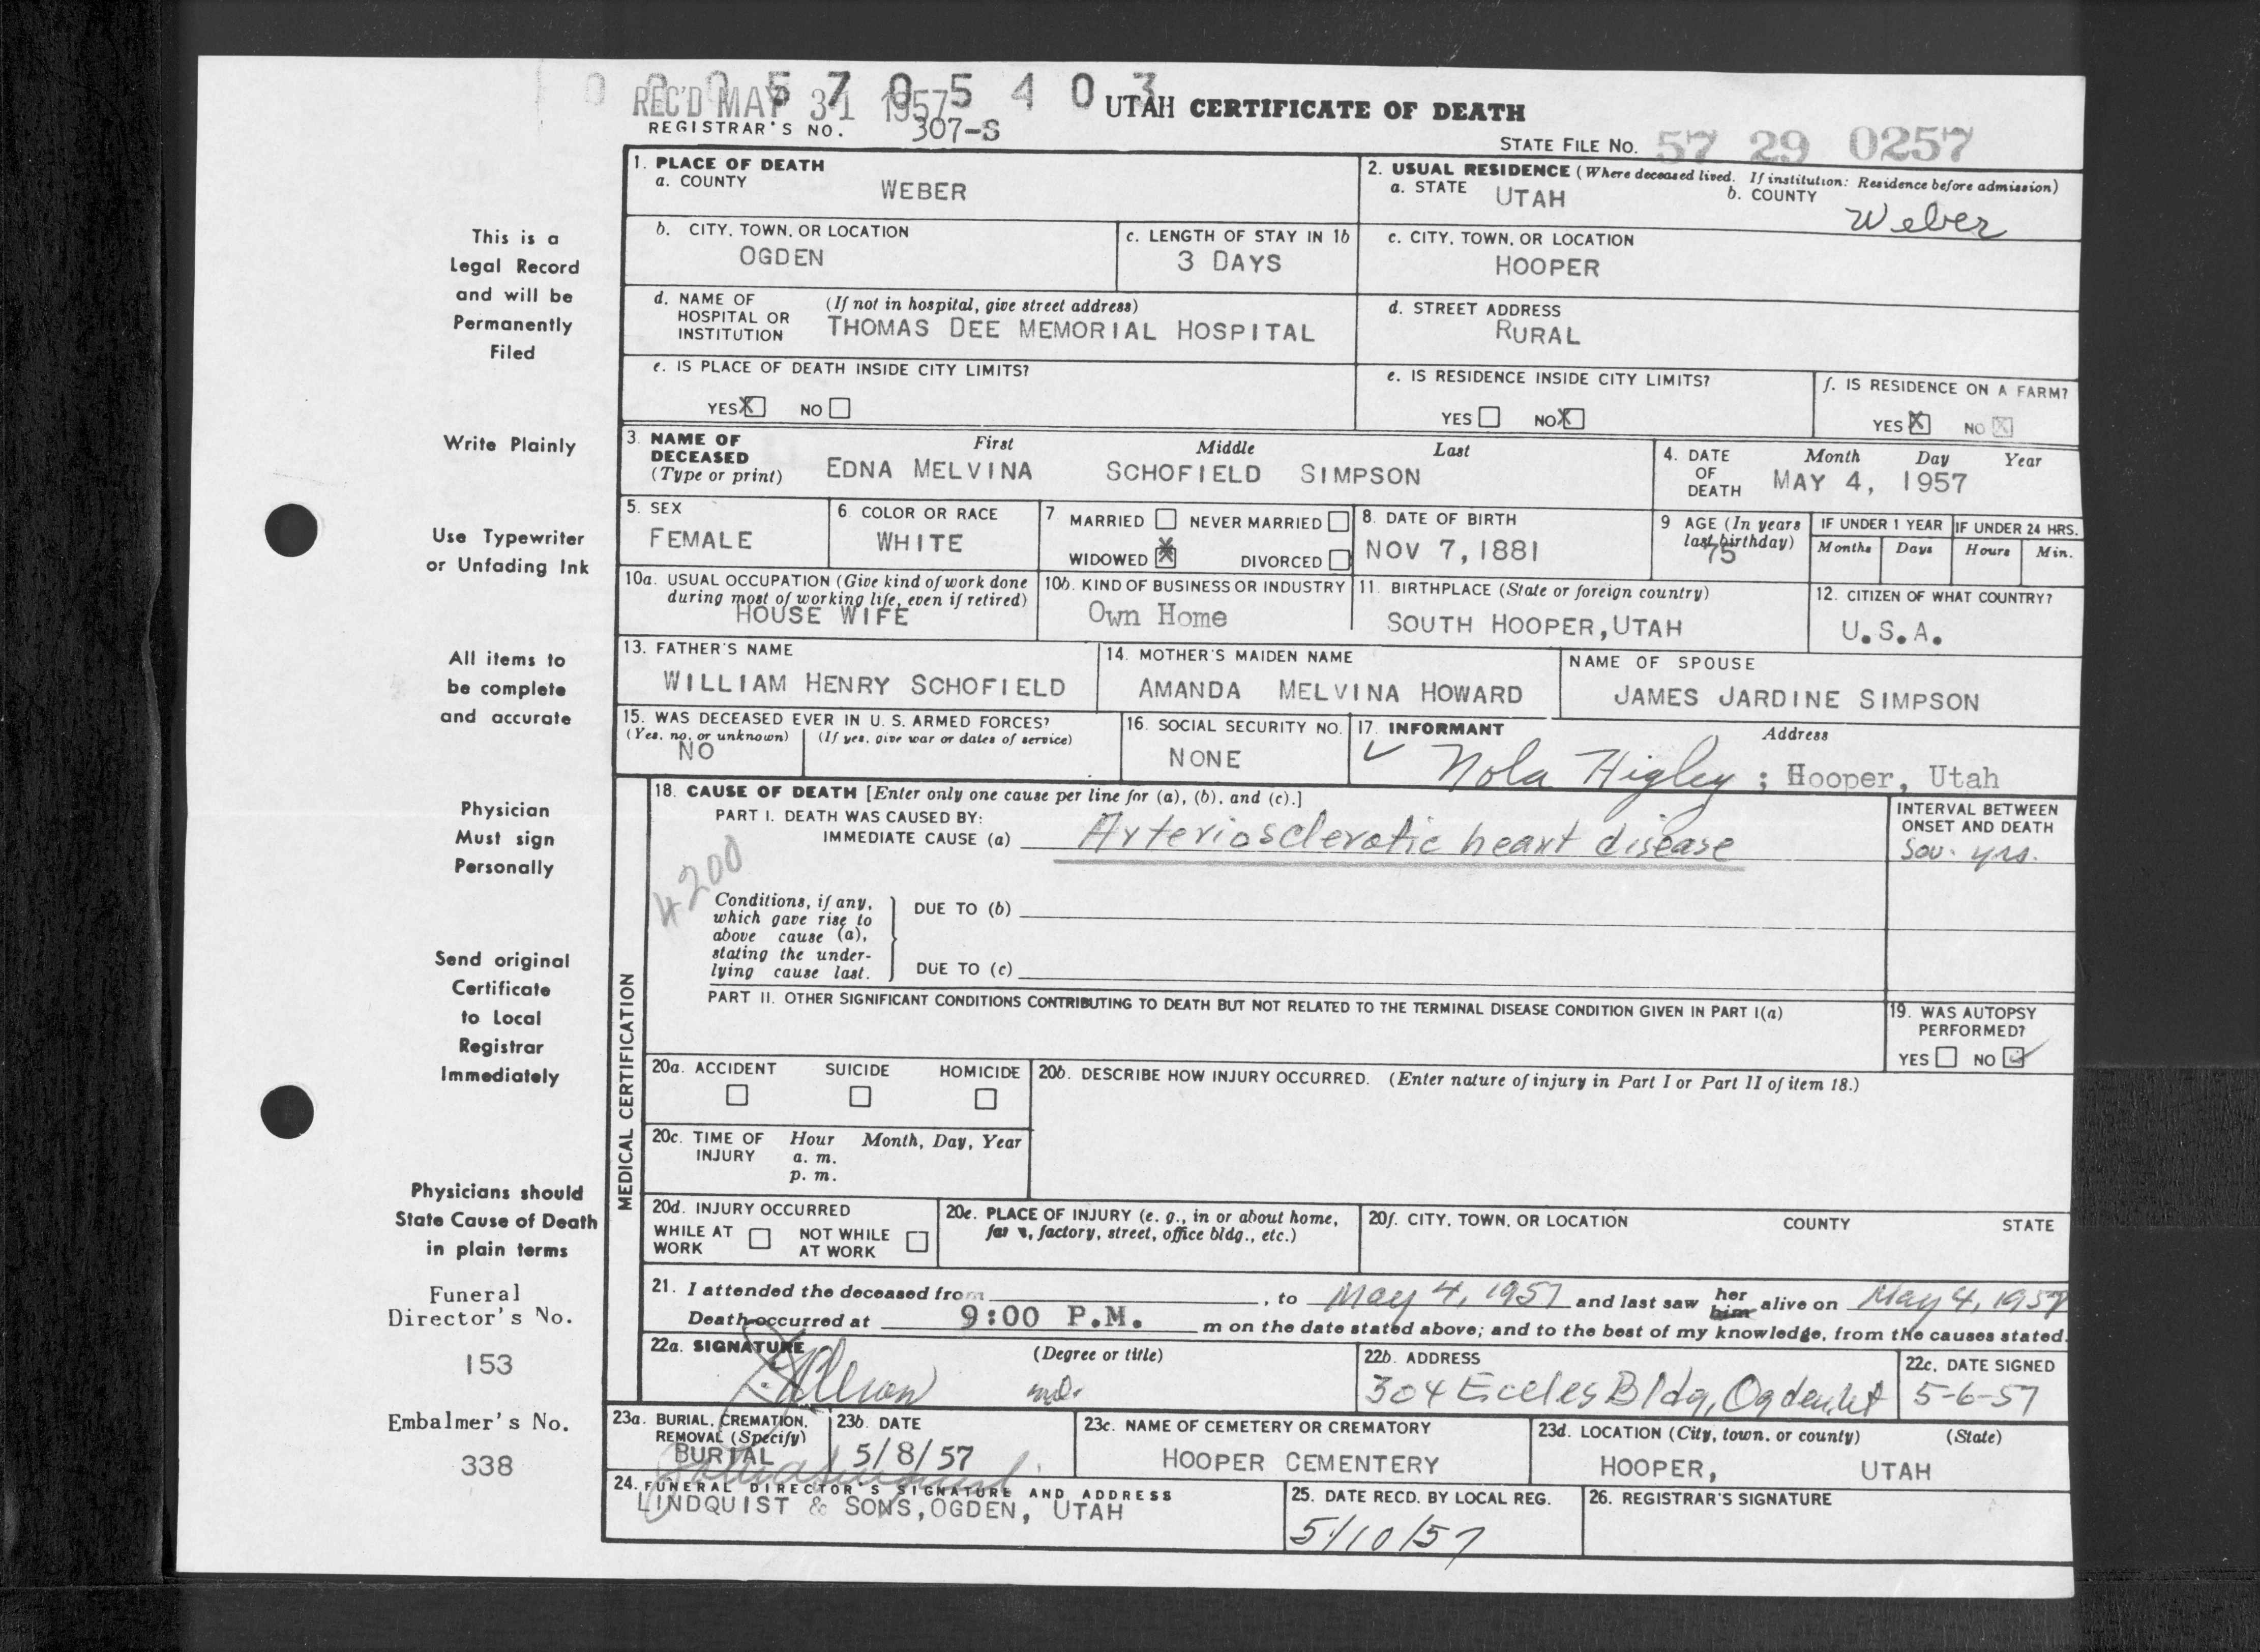 0 0 0 5 7 0 5 4 0 3
REC'D MAY 31 1957
UTAH CERTIFICATE OF DEATH
REGISTRAR'S NO. 307-S
STATE FILE NO. 57 29 0257
1. PLACE OF DEATH
a. COUNTY WEBER
2. USUAL RESIDENCE (Where deceased lived. If institution: Residence before admission)
a. STATE UTAH b. COUNTY Weber
b. CITY, TOWN, OR LOCATION
OGDEN
c. LENGTH OF STAY IN 1b
3 DAYS
c. CITY, TOWN, OR LOCATION
HOOPER
d. NAME OF HOSPITAL OR INSTITUTION (If not in hospital, give street address)
THOMAS DEE MEMORIAL HOSPITAL
d. STREET ADDRESS
RURAL
e. IS PLACE OF DEATH INSIDE CITY LIMITS?
YES X NO
e. IS RESIDENCE INSIDE CITY LIMITS?
YES NO X
f. IS RESIDENCE ON A FARM?
YES X NO X
3. NAME OF DECEASED (Type or print)
First Middle Last
EDNA MELVINA SCHOFIELD SIMPSON
4. DATE OF DEATH Month Day Year
MAY 4, 1957
5. SEX
FEMALE
6. COLOR OR RACE
WHITE
7. MARRIED NEVER MARRIED
WIDOWED X DIVORCED
8. DATE OF BIRTH
NOV 7, 1881
9 AGE (In years last birthday)
75
IF UNDER 1 YEAR
Months Days
IF UNDER 24 HRS.
Hours Min.
10a. USUAL OCCUPATION (Give kind of work done during most of working life, even if retired)
HOUSE WIFE
10b. KIND OF BUSINESS OR INDUSTRY
Own Home
11. BIRTHPLACE (State or foreign country)
SOUTH HOOPER, UTAH
12. CITIZEN OF WHAT COUNTRY?
U.S.A.
13. FATHER'S NAME
WILLIAM HENRY SCHOFIELD
14. MOTHER'S MAIDEN NAME
AMANDA MELVINA HOWARD
NAME OF SPOUSE
JAMES JARDINE SIMPSON
15. WAS DECEASED EVER IN U. S. ARMED FORCES?
(Yes, no, or unknown) (If yes, give war or dates of service)
NO
16. SOCIAL SECURITY NO.
NONE
17. INFORMANT Address
✓ Nola Higley ; Hooper, Utah
MEDICAL CERTIFICATION
18. CAUSE OF DEATH [Enter only one cause per line for (a), (b), and (c).]
PART I. DEATH WAS CAUSED BY:
IMMEDIATE CAUSE (a) Arteriosclerotic heart disease
INTERVAL BETWEEN ONSET AND DEATH
Sev. yrs.
4200
Conditions, if any, which gave rise to above cause (a), stating the underlying cause last.
DUE TO (b)
DUE TO (c)
PART II. OTHER SIGNIFICANT CONDITIONS CONTRIBUTING TO DEATH BUT NOT RELATED TO THE TERMINAL DISEASE CONDITION GIVEN IN PART I(a)
19. WAS AUTOPSY PERFORMED?
YES NO ✓
20a. ACCIDENT SUICIDE HOMICIDE
20b. DESCRIBE HOW INJURY OCCURRED. (Enter nature of injury in Part I or Part II of item 18.)
20c. TIME OF INJURY Hour Month, Day, Year
a. m.
p. m.
20d. INJURY OCCURRED
WHILE AT WORK NOT WHILE AT WORK
20e. PLACE OF INJURY (e. g., in or about home, farm, factory, street, office bldg., etc.)
20f. CITY, TOWN, OR LOCATION COUNTY STATE
21. I attended the deceased from , to May 4, 1957 and last saw her him alive on May 4, 1957
Death occurred at 9:00 P.M. m on the date stated above; and to the best of my knowledge, from the causes stated.
22a. SIGNATURE (Degree or title)
md.
22b. ADDRESS
304 Eccles Bldg, Ogden, Ut
22c. DATE SIGNED
5-6-57
23a. BURIAL, CREMATION, REMOVAL (Specify)
BURIAL
23b. DATE
5/8/57
23c. NAME OF CEMETERY OR CREMATORY
HOOPER CEMENTERY
23d. LOCATION (City, town, or county) (State)
HOOPER, UTAH
24. FUNERAL DIRECTOR'S SIGNATURE AND ADDRESS
LINDQUIST & SONS, OGDEN, UTAH
25. DATE RECD. BY LOCAL REG.
5/10/57
26. REGISTRAR'S SIGNATURE
This is a
Legal Record
and will be
Permanently
Filed
Write Plainly
Use Typewriter
or Unfading Ink
All items to
be complete
and accurate
Physician
Must sign
Personally
Send original
Certificate
to Local
Registrar
Immediately
Physicians should
State Cause of Death
in plain terms
Funeral
Director's No.
153
Embalmer's No.
338